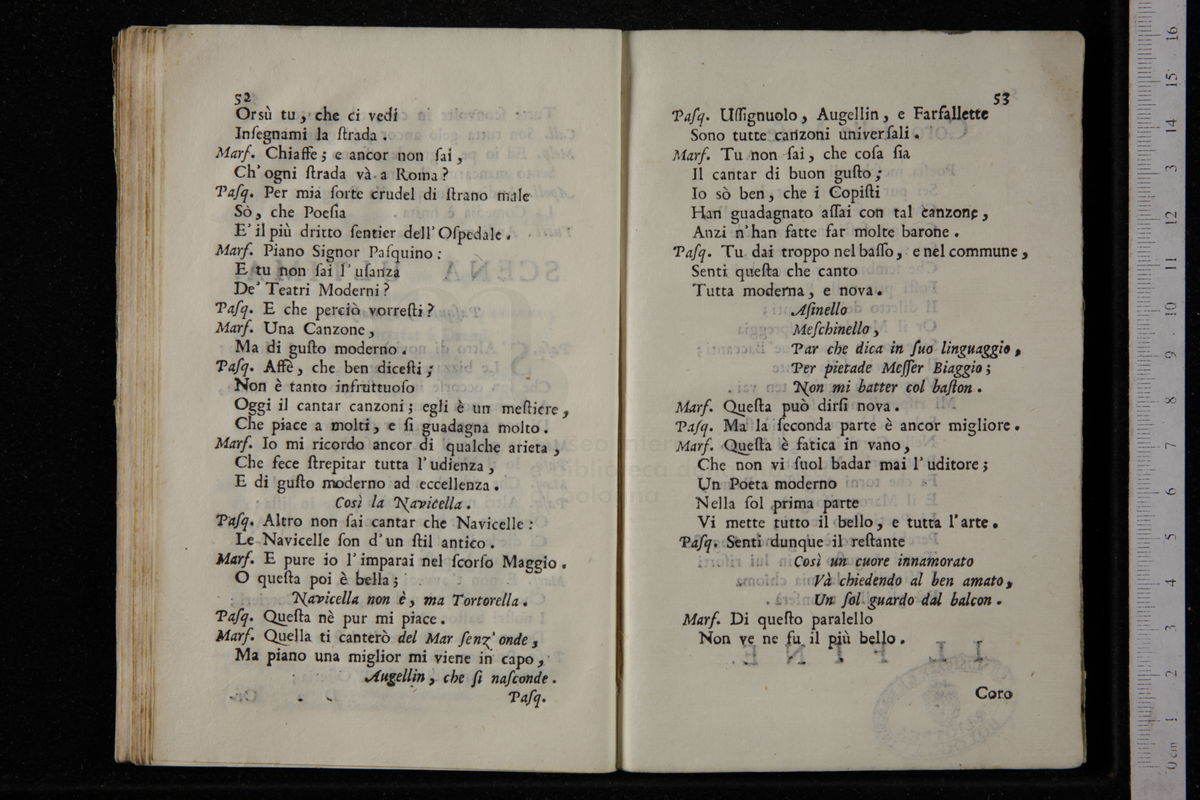 52
Orsù tu, che ci vedi
Inſegnami la ſtrada.
Marf. Chiaffe; e ancor non ſai,
Ch' ogni ſtrada và a Roma?
Paſq. Per mia ſorte crudel di ſtrano male
Sò, che Poeſia
E' il più dritto ſentier dell' Oſpedale.
Marf. Piano Signor Paſquino:
E tu non ſai l' uſanza
De' Teatri Moderni?
Paſq. E che perciò vorreſti?
Marf. Una Canzone,
Ma di guſto moderno.
Paſq. Affè, che ben diceſti;
Non è tanto infruttuoſo
Oggi il cantar canzoni; egli è un meſtiere,
Che piace a molti, e ſi guadagna molto.
Marf. Io mi ricordo ancor di qualche arieta,
Che fece ſtrepitar tutta l' udienza,
E di guſto moderno ad eccellenza.
Così la Navicella.
Paſq. Altro non ſai cantar che Navicelle:
Le Navicelle ſon d' un ſtil antico.
Marf. E pure io l' imparai nel ſcorſo Maggio.
O queſta poi è bella;
Navicella non è, ma Tortorella.
Paſq. Queſta nè pur mi piace.
Marf. Quella ti canterò del Mar ſenz' onde,
Ma piano una miglior mi viene in capo,
Augellin, che ſi naſconde.
Paſq.
53
Paſq. Uſſignuolo, Augellin, e Farfallette
Sono tutte canzoni univerſali.
Marf. Tu non ſai, che coſa ſia
Il cantar di buon guſto;
Io sò ben, che i Copiſti
Han guadagnato aſſai con tal canzone,
Anzi n'han fatte far molte barone.
Paſq. Tu dai troppo nel baſſo, e nel commune,
Senti queſta che canto
Tutta moderna, e nova.
Aſinello
Meſchinello,
Par che dica in ſuo linguaggio,
Per pietade Meſſer Biaggio;
Non mi batter col baſton.
Marf. Queſta può dirſi nova.
Paſq. Ma la ſeconda parte è ancor migliore.
Marf. Queſta è fatica in vano,
Che non vi ſuol badar mai l' uditore;
Un Poeta moderno
Nella ſol prima parte
Vi mette tutto il bello, e tutta l'arte.
Paſq. Senti dunque il reſtante
Così un cuore innamorato
Và chiedendo al ben amato,
Un ſol guardo dal balcon.
Marf. Di queſto paralello
Non ve ne fu il più bello.
Coro